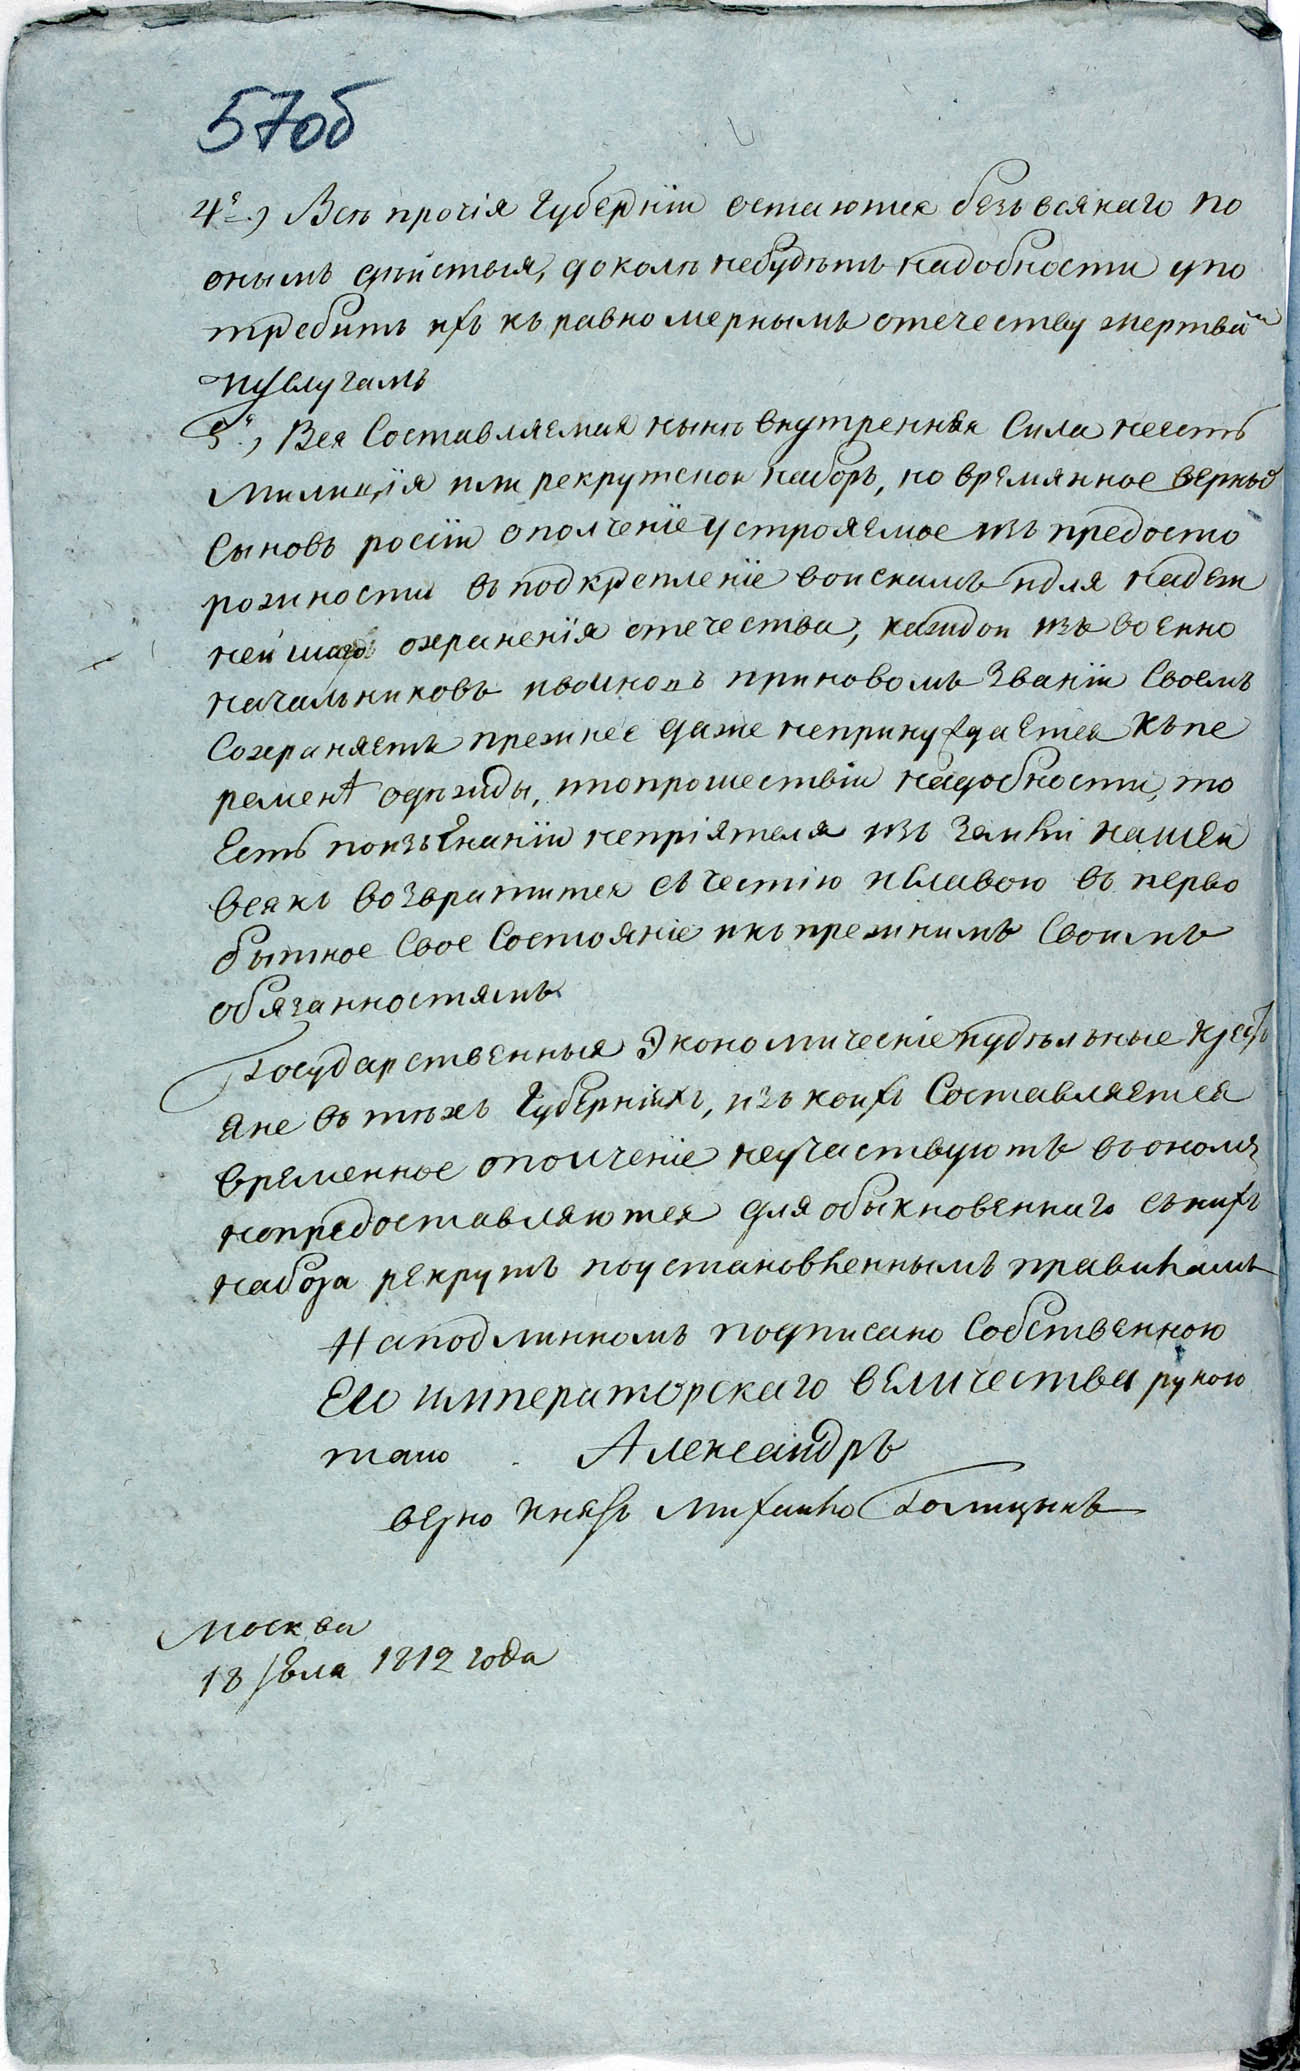 57об
4е.) Всѣ прочія Губерніи остаются безъ всякаго по
онымъ дѣйствія, доколѣ небудетъ надобности упо
требить ихъ къ равномернымъ отечеству жертвам
иуслугамъ
5е.) Вся Составляемая нынѣ внутренняя Сила несть
Милиція или рекрутской наборъ, но времянное верных
Сыновъ росіи ополченіе устрояемое изъ предосто
рожности въ подкрепленіе воискамъ идля надеж
нейшаго охраненія отечества, каждои изъ военно
начальниковъ ивоиновъ приновомъ Званіи Своемъ
Сохраняетъ прежнее даже непринуждается Къ пе
ременѣ одѣжды, ипопрошествіи надобности, то
Есть поизъгнаніи непріятеля изъ Земли нашеи
всякъ возвратится съ честію иСлавою въ перво
бытное Свое Состояніе икъ прежнимъ Своимъ
обязанностямъ
Государственныя Экономическіе иудѣльные крестъ
яне въ тѣхъ Губерніяхъ, изъ коихъ Составляется
временное ополченіе неучаствуютъ въ ономъ
нопредоставляются для обыкновеннаго съ нихъ
набора рекрутъ поустановленнымъ правиламъ
Наподлинномъ подписано Собственною
Его императорскаго величества рукою
тако Александръ
верно Князь Михаило Голицынъ
Москва
18 Іюля 1812 года